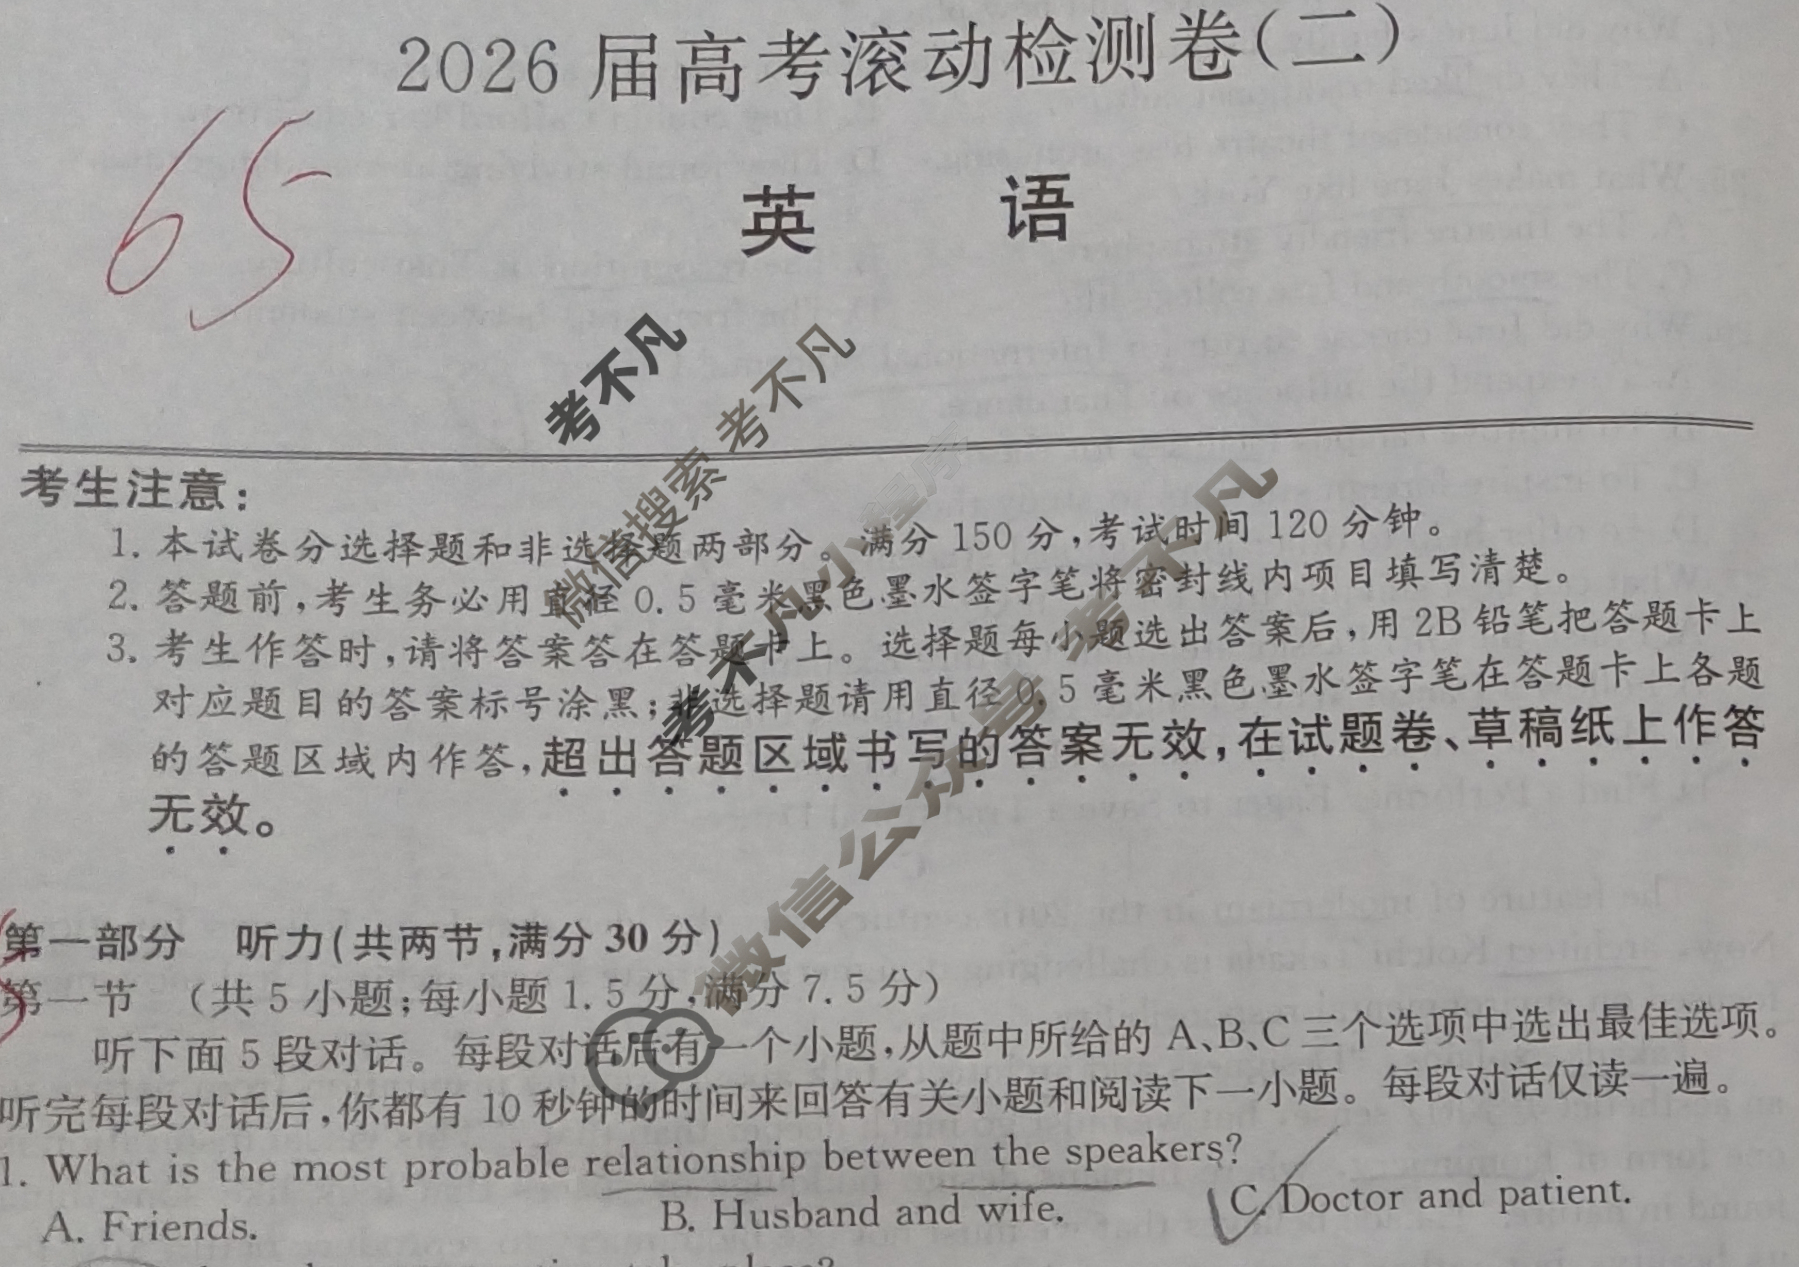 2026届高考滚动检测卷(二)
65
英 语
考生注意:
1. 本试卷分选择题和非选择题两部分。满分150分,考试时间120分钟。
2. 答题前,考生务必用直径0.5毫米黑色墨水签字笔将密封线内项目填写清楚。
3. 考生作答时,请将答案答在答题卡上。选择题每小题选出答案后,用2B铅笔把答题卡上
对应题目的答案标号涂黑;非选择题请用直径0.5毫米黑色墨水签字笔在答题卡上各题
的答题区域内作答,超出答题区域书写的答案无效,在试题卷、草稿纸上作答
无效。
第一部分 听力(共两节,满分30分)
第一节 (共5小题;每小题1.5分,满分7.5分)
听下面5段对话。每段对话后有一个小题,从题中所给的A、B、C三个选项中选出最佳选项。
听完每段对话后,你都有10秒钟的时间来回答有关小题和阅读下一小题。每段对话仅读一遍。
1. What is the most probable relationship between the speakers?
A. Friends. B. Husband and wife. C. Doctor and patient.
考不凡
微信搜索 考不凡
考不凡小程序
微信公众号 考不凡